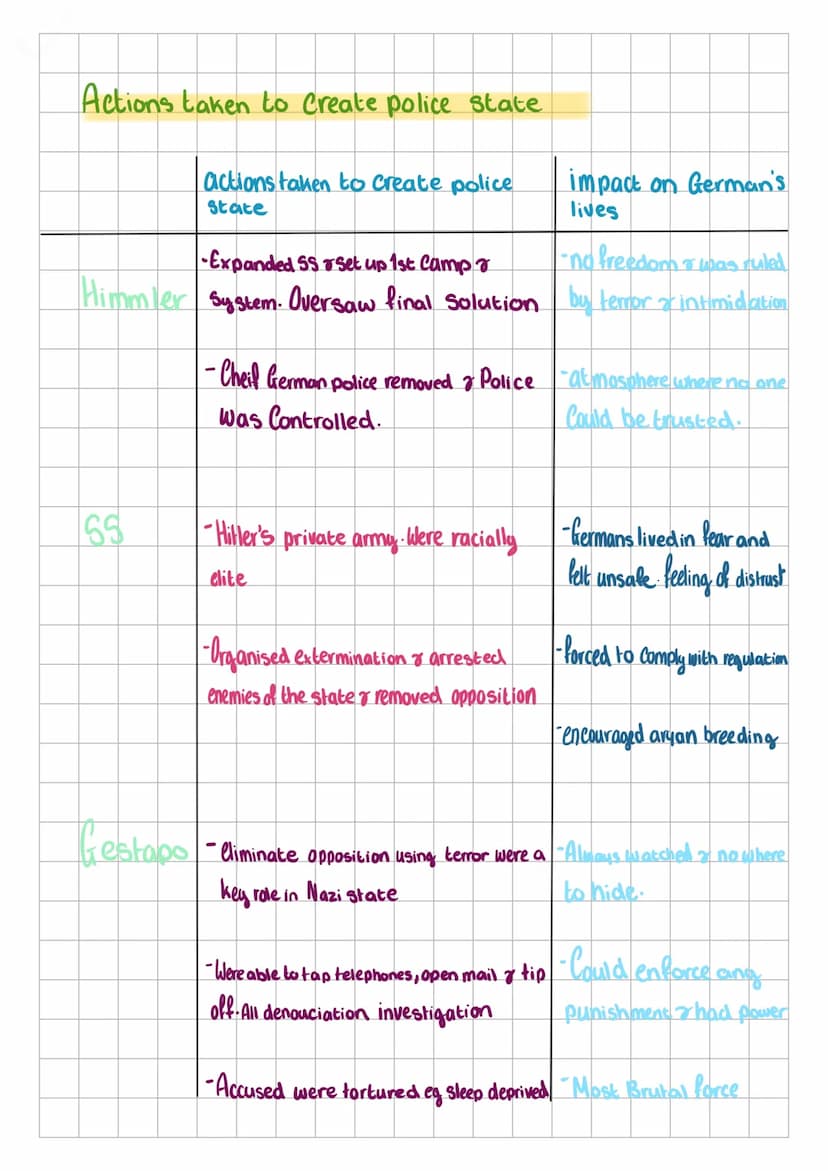 Actions taken to create police state
actions taken to create police
state
impact on German's
lives
Himmler
-Expanded SS & set up 1st Camp &
System. Oversaw final solution
- Cheif German police removed & Police
was Controlled.
-no freedom & was ruled
by terror & intimidation
-atmosphere where no one
Could be trusted.
SS
-Hitler's private army. Were racially
elite
-Organised extermination & arrested
enemies of the state & removed opposition
-Germans lived in fear and
felt unsafe. feeling of distrust
-forced to comply with regulation
-encouraged aryan breeding
Gestapo
-eliminate opposition using terror were a
key role in Nazi state
-Were able to tap telephones, open mail & tip
off. All denouciation investigation
-Accused were tortured eg sleep deprived
-Always watched & no where
to hide.
-Could enforce any
punishment & had power
-Most Brutal force